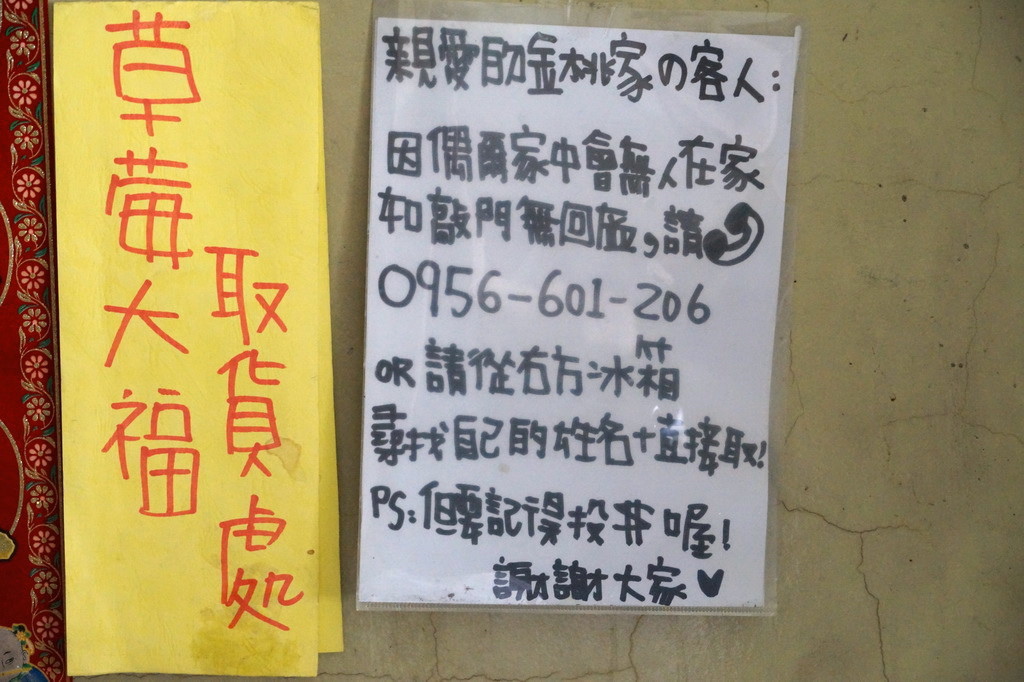 草莓大福
取貨處
親愛的金桃家の客人:
因偶爾家中會無人在家
如敲門無回應,請
0956-601-206
OR 請從右方冰箱
尋找自己的姓名+直接取!
PS:但要記得投幣喔!
謝謝大家♥